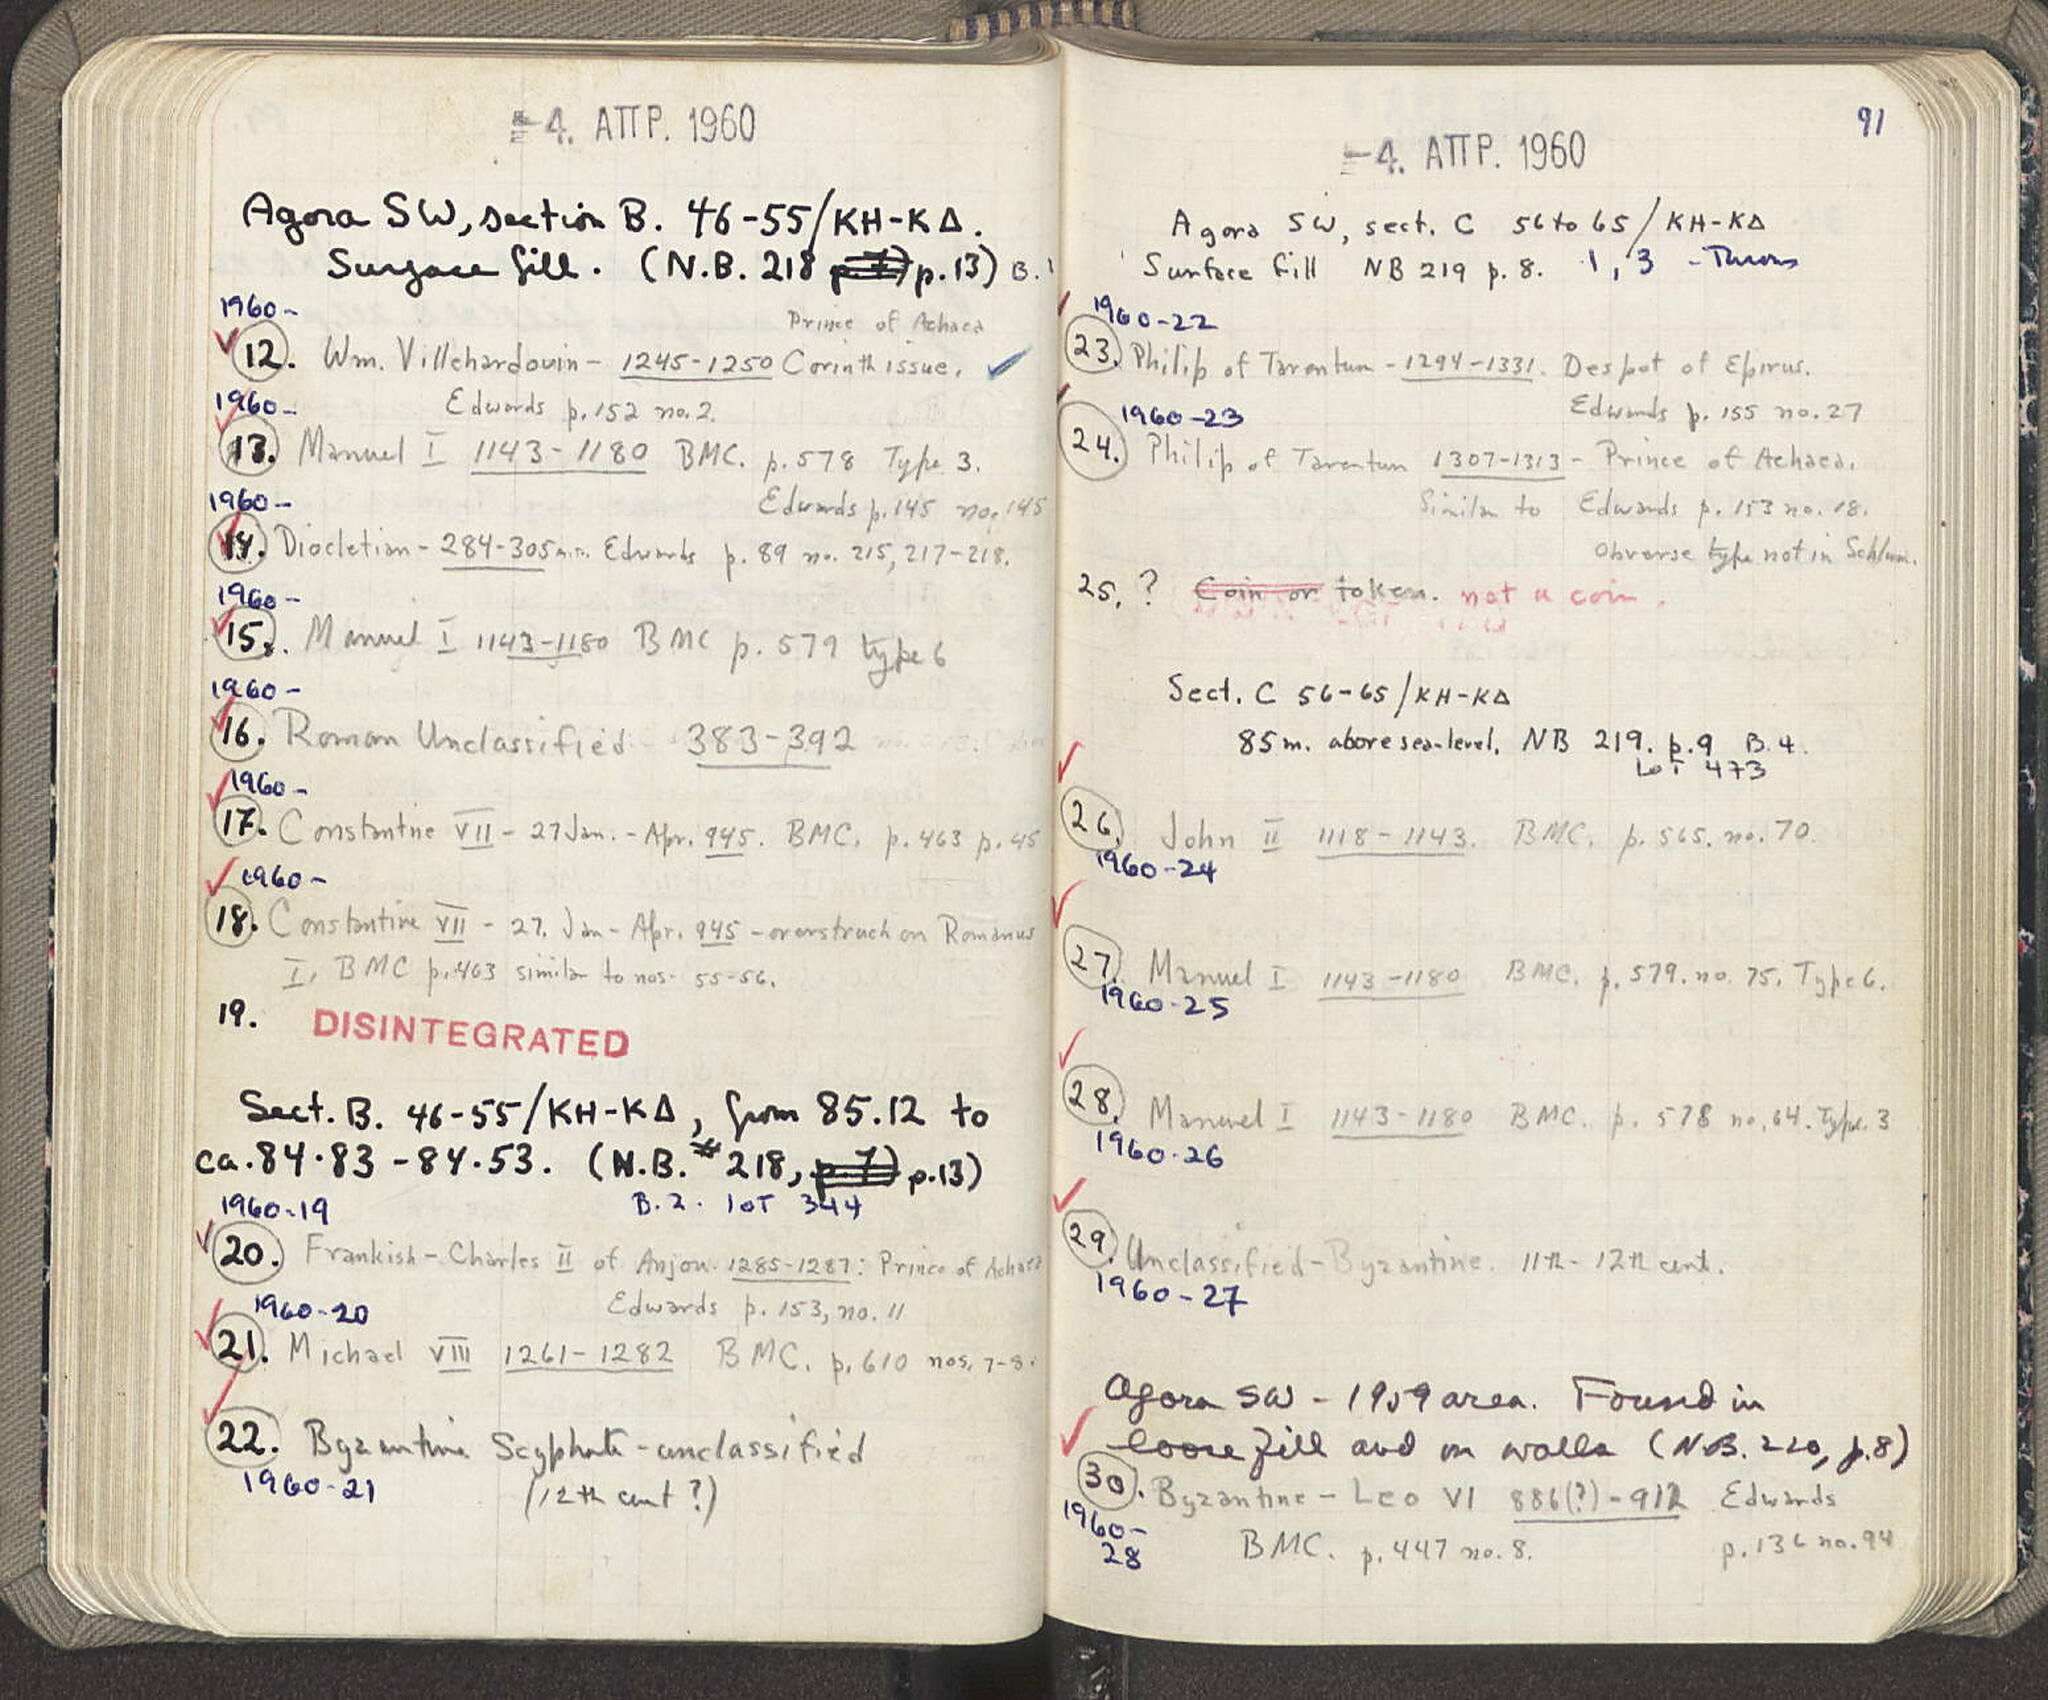 -4. ΑΠΡ. 1960
Agora SW, section B. 46-55/KH-KΔ.
Surface fill. (N.B. 218 p. 7) p.13) B.1
1960-
Prince of Achaea
12. Wm. Villehardouin - 1245-1250 Corinth issue.
1960-
Edwards p. 152 no. 2.
13. Manuel I 1143-1180 BMC. p. 578 Type 3.
1960-
Edwards p. 145 no. 145
14. Diocletian - 284-305 Edwards p. 89 no. 215, 217-218.
1960-
15. Manuel I 1143-1180 BMC p. 579 type 6
1960-
16. Roman Unclassified 383-392
1960-
17. Constantine VII - 27 Jan. - Apr. 945. BMC. p. 463 p. 45
1960-
18. Constantine VII - 27. Jan - Apr. 945 - overstruck on Romanus
I. BMC p. 463 similar to nos. 55-56.
19. DISINTEGRATED
Sect. B. 46-55/KH-KΔ, from 85.12 to
ca. 84.83 - 84.53. (N.B. # 218, p. 7) p.13)
1960-19 B.2. lot 344
20. Frankish - Charles II of Anjou. 1285-1287: Prince of Achaea
1960-20 Edwards p. 153, no. 11
21. Michael VIII 1261-1282 BMC. p. 610 nos. 7-8.
22. Byzantine Scyphate - unclassified
1960-21 (12th cent ?)
91
-4. ΑΠΡ. 1960
Agora SW, sect. C 56 to 65/KH-KΔ
Surface fill NB 219 p. 8. 1, 3 - Thrown
1960-22
23. Philip of Tarentum - 1294-1331. Despot of Epirus.
1960-23 Edwards p. 155 no. 27
24. Philip of Tarentum 1307-1313 - Prince of Achaea.
Similar to Edwards p. 153 no. 18.
Obverse type not in Schlum.
25. ? Coin or token. not a coin.
Sect. C 56-65/KH-KΔ
85 m. above sea-level. NB 219. p. 9 B. 4.
Lot 473
26. John II 1118-1143. BMC. p. 565. no. 70.
1960-24
27. Manuel I 1143-1180 BMC. p. 579. no. 75. Type 6.
1960-25
28. Manuel I 1143-1180 BMC. p. 578 no. 64. Type. 3
1960-26
29. Unclassified - Byzantine. 11th - 12th cent.
1960-27
Agora SW - 1959 area. Found in
loose fill and on walls (N.B. 220, p. 8)
30. Byzantine - Leo VI 886(?) - 912 Edwards
1960-
28 BMC. p. 447 no. 8. p. 136 no. 94